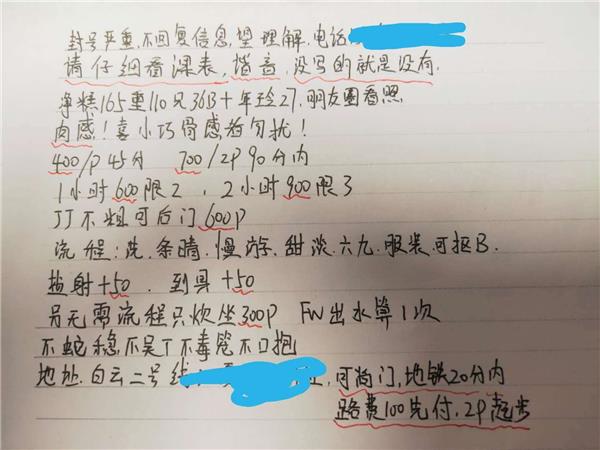 封号严重,不回复信息,望理解,电话
请仔细看课表,谐音,没写的就是没有.
净糕165重110兄36B+年玲27.朋友圈看照
肉感!喜小巧骨感者勿扰!
400/P 45分 700/2P 90分内
1小时600限2 , 2小时900限3
JJ不粗可后门600P
流程:洗.条晴.慢游.甜淡.六九.服装.可抠B.
盐射+50. 到具+50
另无需流程只炊坐300P FW出水算1次
不蛇稳,不吴T不毒龙不口抱
地址.白云二号线 可尚门,地铁20分内
路费100先付.2P起步